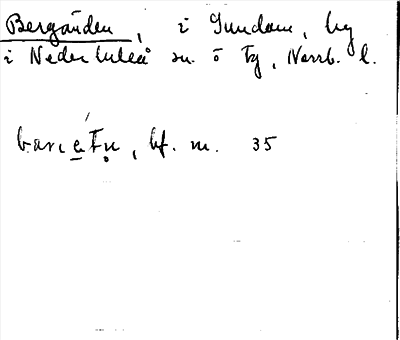 Bergänden, i Sundom, by
i Nederluleå sn. ö Fg, Norrb. l.
bf. m. 35